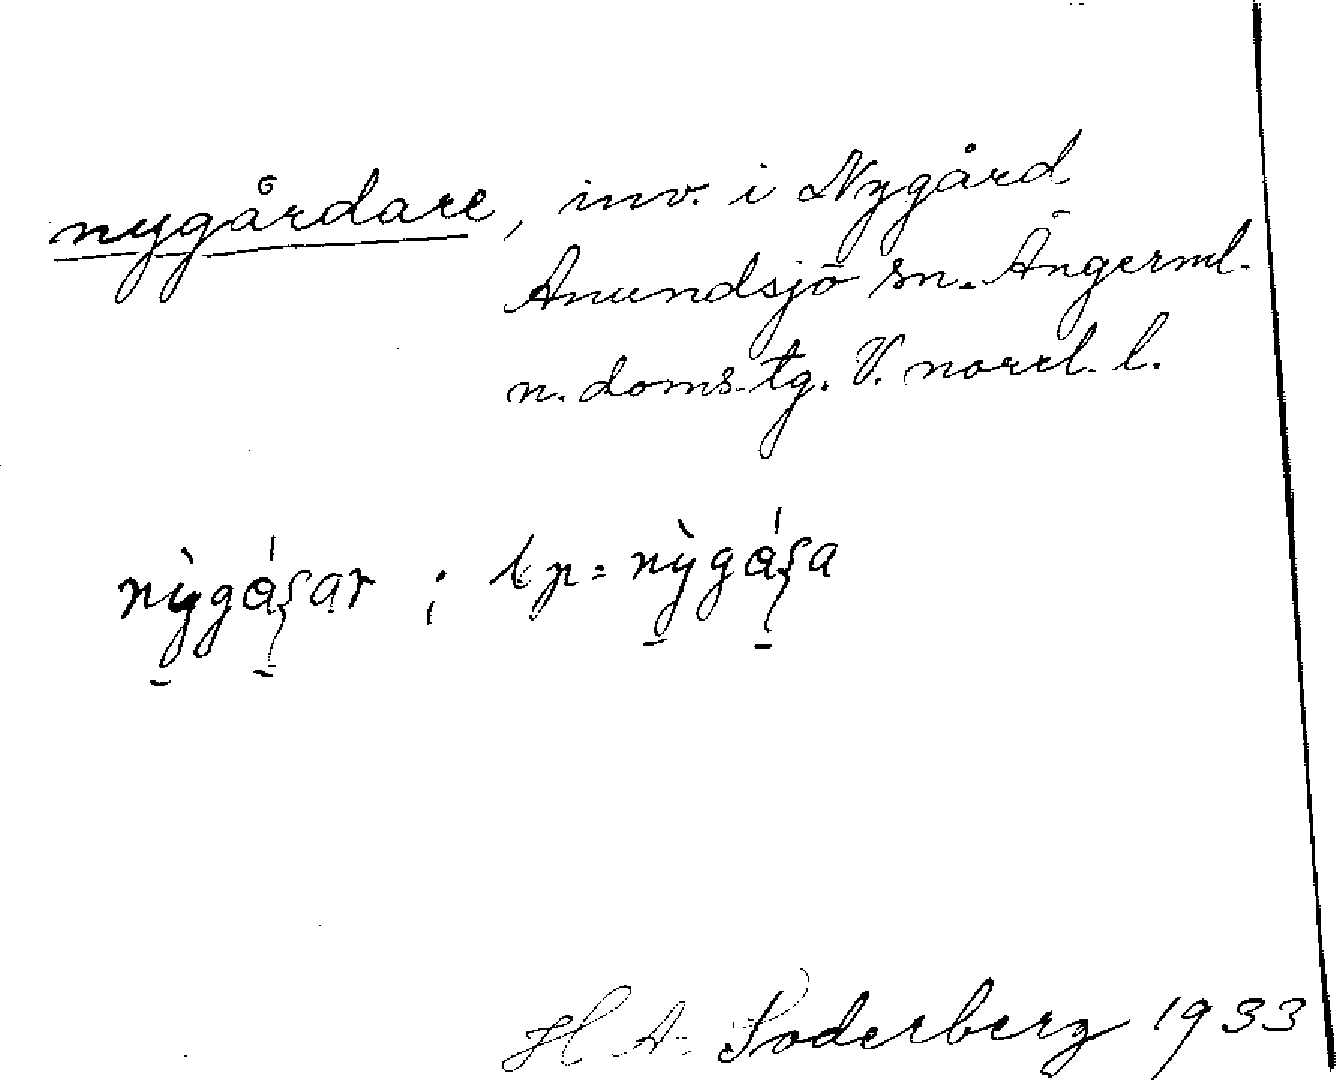 nygårdare, inv. i Nygård
Anundsjö sn. Ångerml.
n. doms. tg. V. norrl. l.
H. A. Söderberg 1933